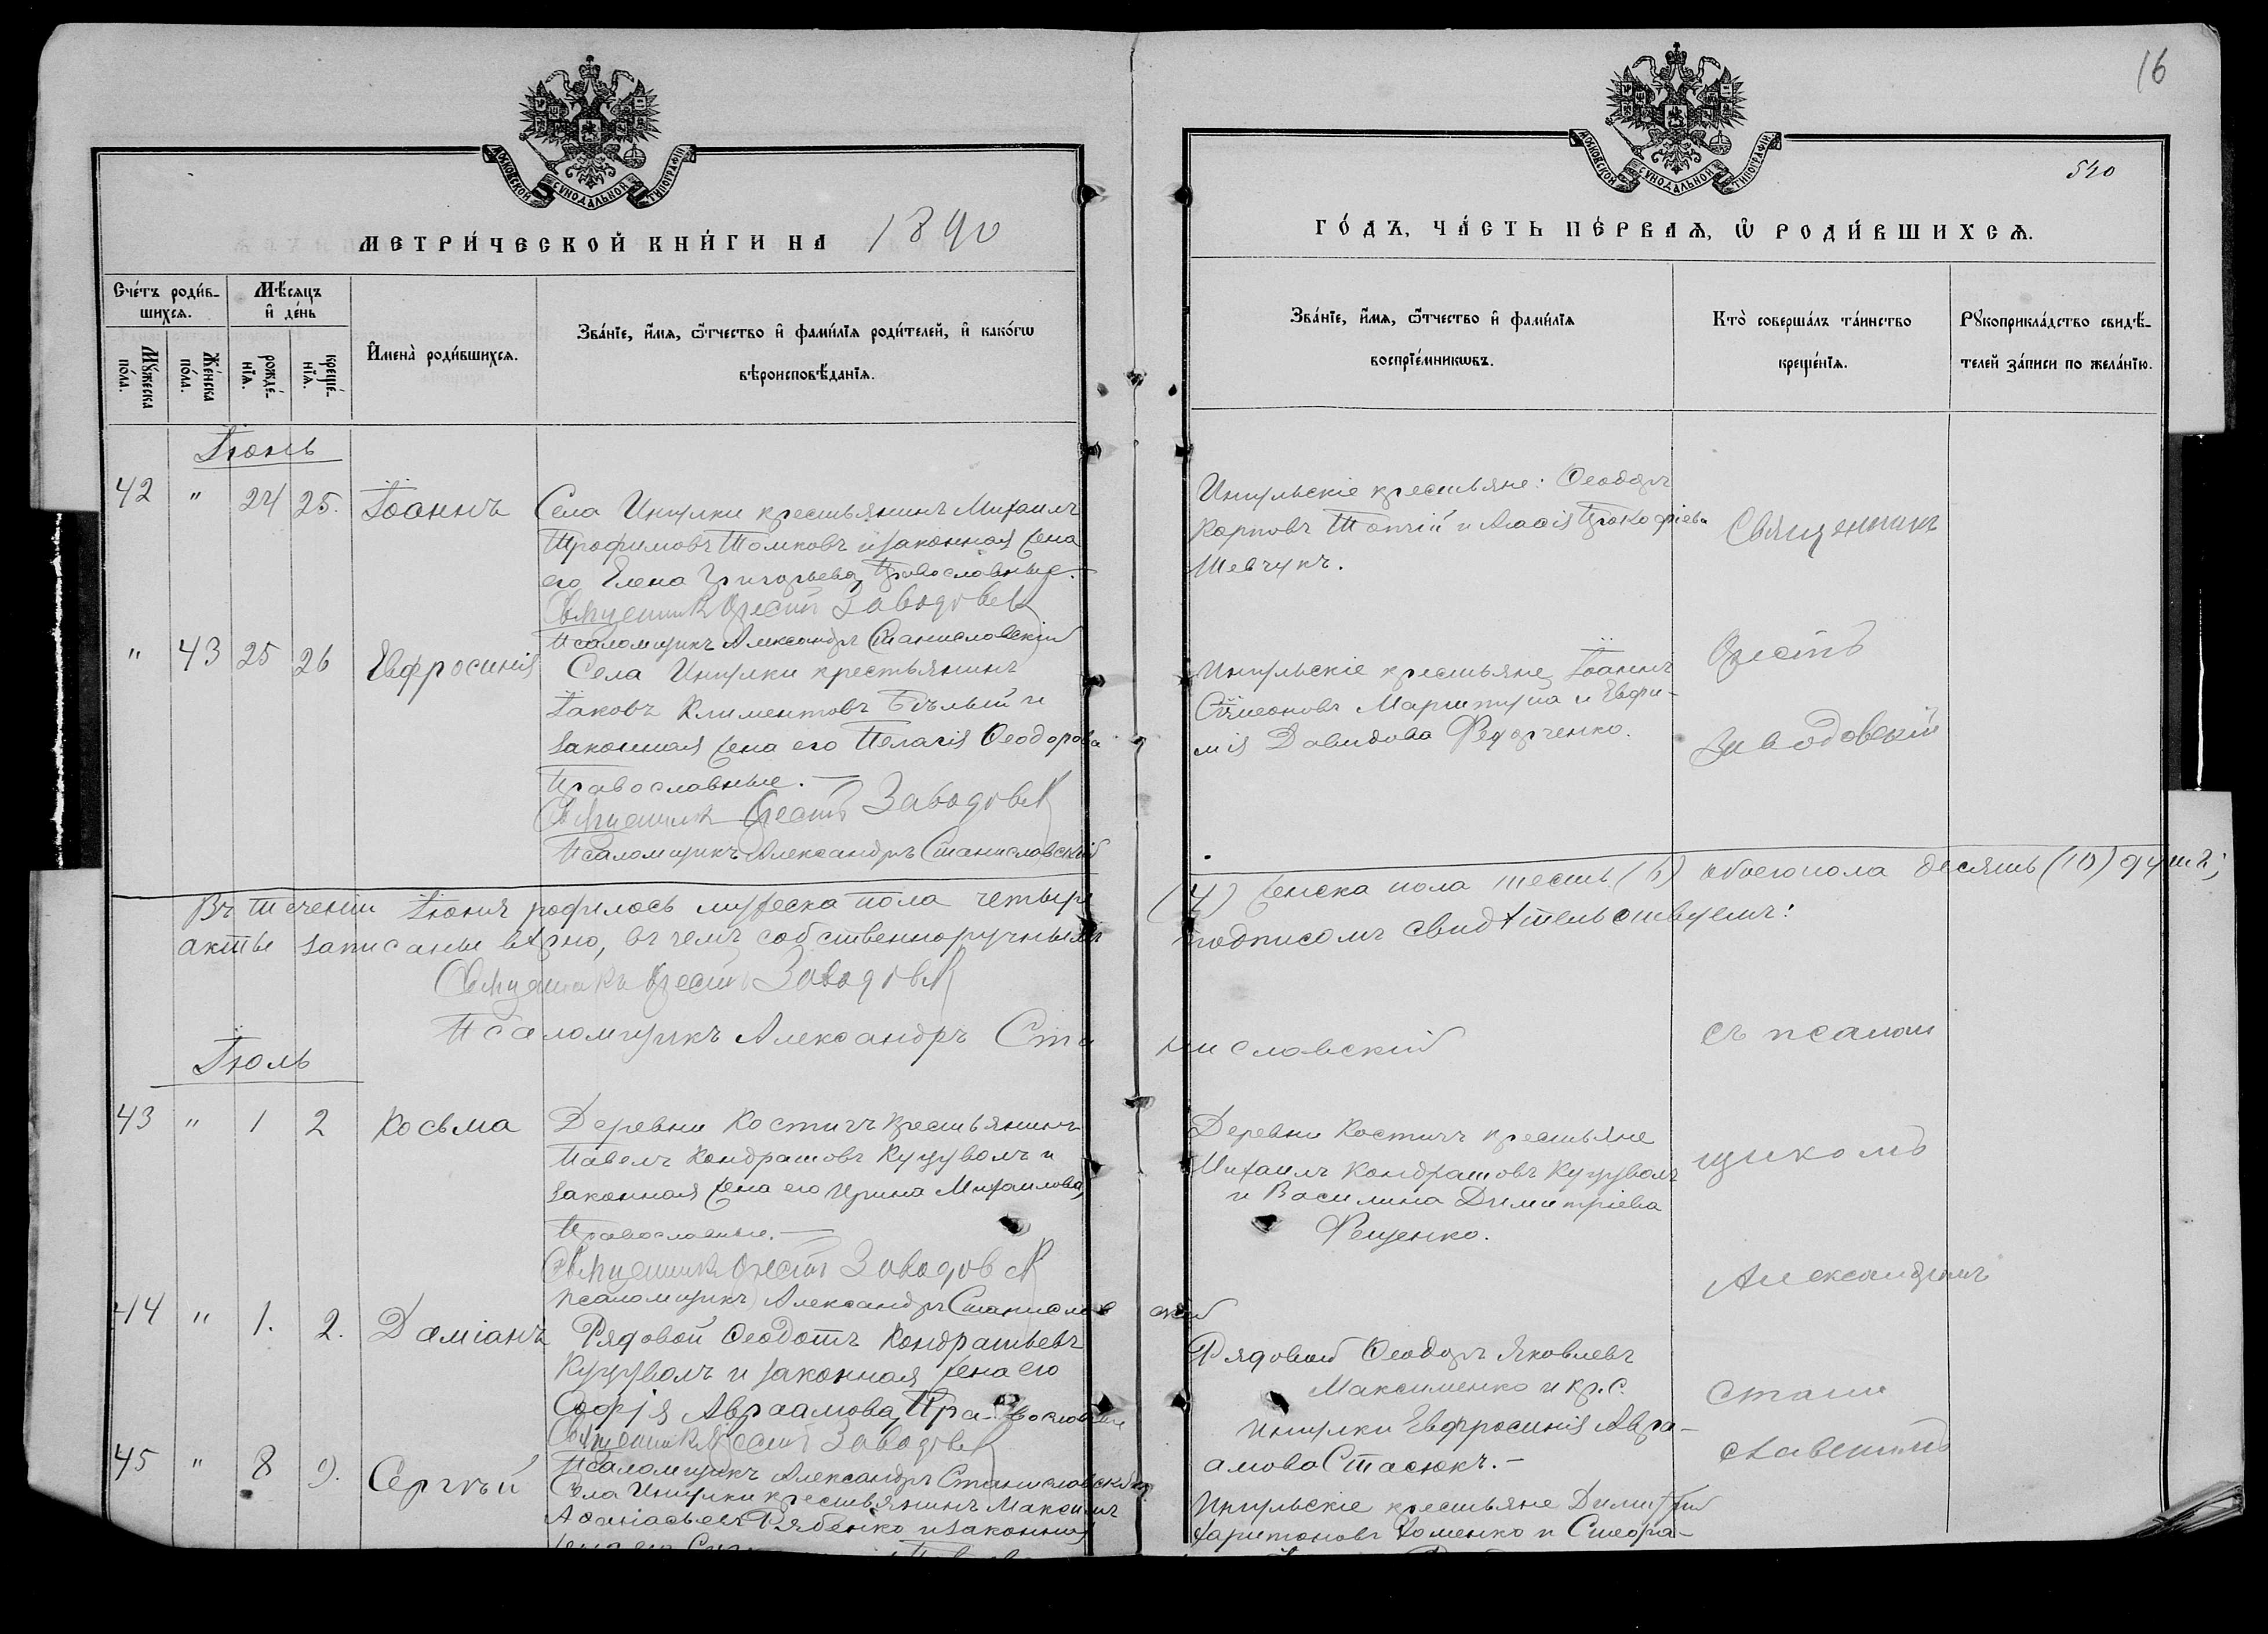 16
МОСКОВСКОЙ СУНОДАЛЬНОЙ ТИПОГРАФІИ.
МОСКОВСКОЙ СУНОДАЛЬНОЙ ТИПОГРАФІИ.
540
МЕТРИ́ЧЕСКОЙ КНИ́ГИ НА 1890
ГО́ДЪ, ЧА́СТЬ ПЕ́РВАѦ, Ѡ҆ РОДИ́ВШИХСѦ.
Сче́тъ роди́в-
шихсѧ.
Мꙋ́жеска
по́ла.
Же́нска
по́ла.
Мѣ́сѧцъ
и҆ де́нь
рожде́-
нїѧ.
креще́-
нїѧ.
И҆мена̀ роди́вшихсѧ.
Зва́нїе, и҆́мѧ, ѻ҆́тчество и҆ фами́лїѧ роди́телей, и҆ како́гѡ
вѣроисповѣ́данїѧ.
Зва́нїе, и҆́мѧ, ѻ҆́тчество и҆ фами́лїѧ
воспрїе́мникѡвъ.
Кто̀ соверша́лъ та́инство
креще́нїѧ.
Рꙋкоприкла́дство свидѣ́-
телей за́писи по жела́нїю.
Іюнь
42 " 24 25. Іоаннъ
Села Ингулки крестьянинъ Михаилъ
Трофимовъ Томковъ и законная жена
его Елена Григорьева, Православные.
Священникъ Орестъ Заводовск
Псаломщикъ Александръ Станиславскій
Ингульскіе крестьяне: Ѳеодоръ
Карповъ Топчій и Агаѳія Прокофіева
Шевчукъ.
" 43 25 26 Евфросинія
Села Ингулки крестьянинъ
Іаковъ Климентовъ Бѣлый и
законная жена его Пелагія Ѳеодорова
Православные.
Священникъ Орестъ Заводовск
Псаломщикъ Александръ Станиславскій
Ингульскіе крестьяне, Іоаннъ
Сѵмеоновъ и Евфи-
мія Давидова Федорченко.
Въ теченіи Іюня родилось мужеска пола четыре (4) женска пола шесть (6) обоего пола десять (10) душъ;
акты записаны вѣрно, въ чемъ собственноручнымъ подписомъ свидѣтельствуемъ:
Священникъ Орестъ Заводовск
Псаломщикъ Александръ Станиславскій
Іюль
43 " 1 2 Косьма
Деревни Костичъ крестьянинъ
Павелъ Кондратовъ Куцуволъ и
законная жена его Ирина Михаилова,
Православные.
Священникъ Орестъ Заводовск
Псаломщикъ Александръ Станиславскій
Деревни Костичъ крестьяне
Михаилъ Кондратовъ Куцуволъ
и Василина Димитріева
Фещенко.
44 " 1. 2. Даміанъ
Рядовой Ѳеодотъ Кондратьевъ
Куцуволъ и законная жена его
Софія Авраамова, Православные
Священникъ Орестъ Заводовск
Псаломщикъ Александръ Станиславскій
Рядовой Ѳеодоръ Яковлевъ
Максименко и кр. с.
Ингулки Евфросинія Авра-
амова Стасюкъ.
45 " 8 9. Сергѣй
Села Ингулки крестьянинъ Максимъ
Аѳанасьевъ Рябенко и законная
жена его
Ингульскіе крестьяне Димитрій
Харитоновъ Хоменко и Стефа-
Священникъ
Орестъ
Заводовскій
съ псалом
щикомъ
Александромъ
Стани
славскимъ